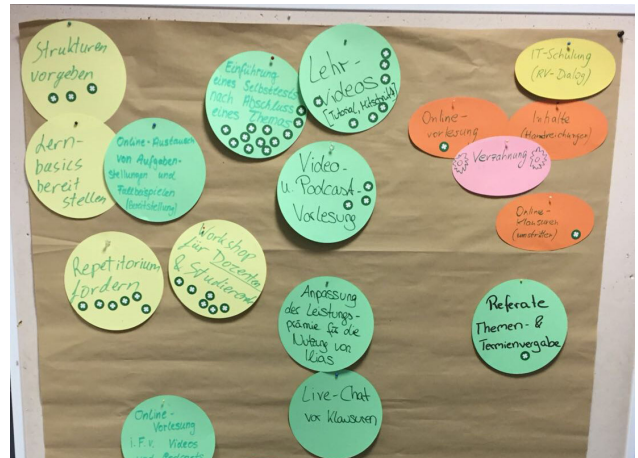 Strukturen
vorgeben
Lern-
basics
bereit
stellen
Online-Austausch
von Aufgaben-
stellungen und
Fallbeispielen
(Bereitstellung)
Einführung
eines Selbsttests
nach Abschluss
eines Themas
Lehr-
Videos
(Tutorial, Mitschnitt)
Video-
u. Podcast-
Vorlesung
IT-Schulung
(RV-Dialog)
Online-
vorlesung
Inhalte
(Handreichungen)
Verzahnung
Online-
Klausuren
(umstritten)
Repetitorium
fördern
Workshop
für Dozenten
& Studierende
Anpassung
der Leistungs-
prämie für die
Nutzung von
Ilias
Referate
Themen- &
Termienvergabe
Live-Chat
vor Klausuren
Online-
Vorlesung
i.F.v. Videos